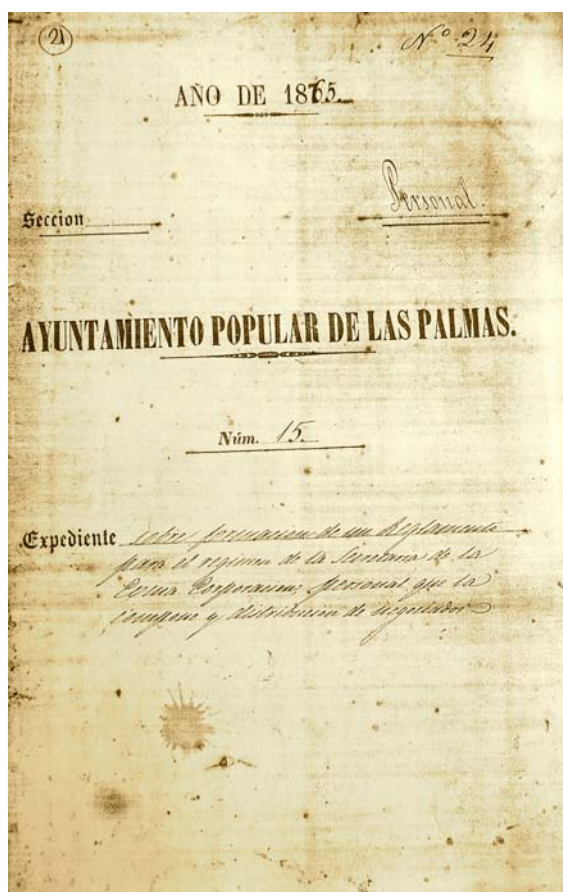 21
Nº 24
AÑO DE 1865
Personal.
Seccion
AYUNTAMIENTO POPULAR DE LAS PALMAS.
Núm. 15.
Expediente sobre formacion de un Reglamento
para el regimen de la Secretaria de la
Corporacion, personal que la
compone y distribucion de negociados